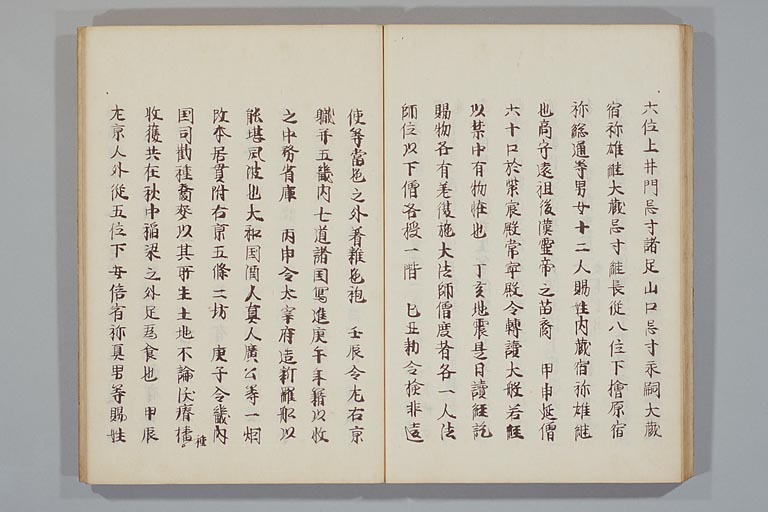 六位上井門忌寸諸足山口忌寸永嗣大蔵
宿祢雄継大蔵忌寸継長従八位下檜原宿
祢総通等男女十二人賜姓内蔵宿祢雄継
也高守遠祖後漢霊帝之苗裔 甲申延僧
六十口於紫宸殿常寧殿令轉讀大般若経
以禁中有物恠也 丁亥地震是日讀経訖
賜物各有差復施大法師僧度者各一人法
師位以下僧各授一階 己丑勅令検非違
使等當色之外著雑色袍 壬辰令左右京
職并五畿内七道諸国寫進庚午年籍以收
之中務省庫 丙申令太宰府造新羅船以
能堪風波也 大和国人真人廣公等一烟
改本居貫附右京五條二坊 庚子令畿内
国司勸種蕎麥以其所生土地不論沃瘠
種
收獲共在秋中稲梁之外足為食也 甲辰
左京人外従五位下安倍宿祢真男等賜姓